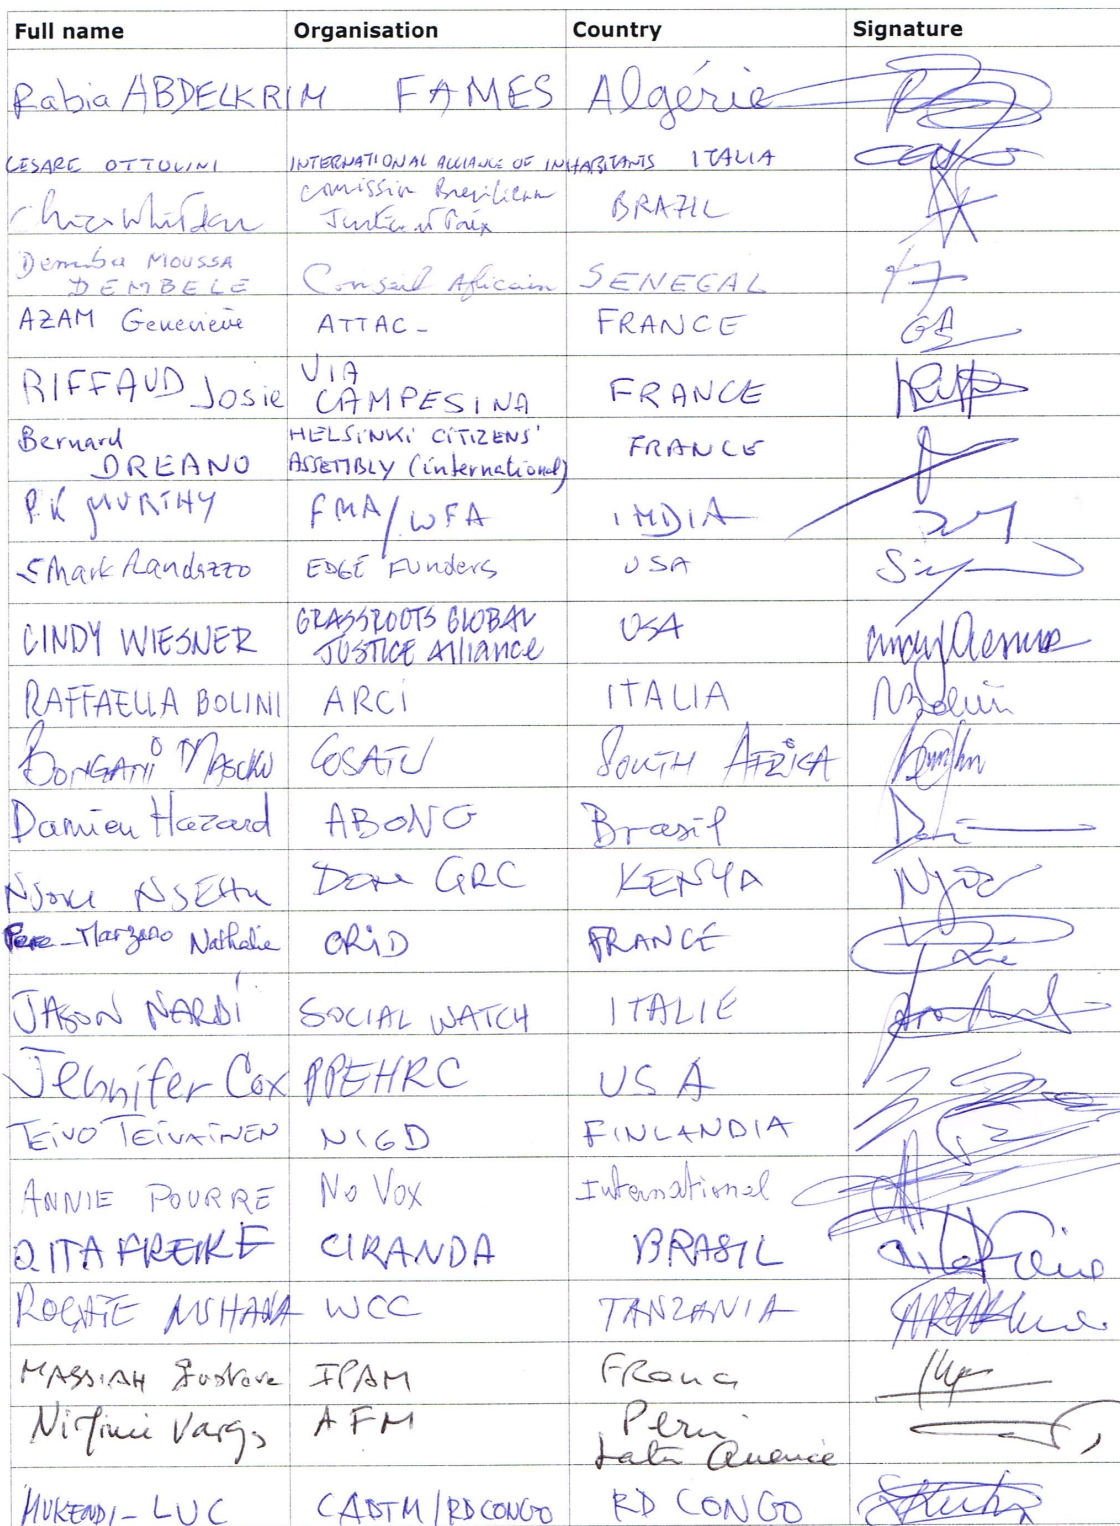 Full name Organisation Country Signature
Rabia ABDELKRIM FAMES Algérie
CESARE OTTOLINI INTERNATIONAL ALLIANCE OF INHABITANTS ITALIA
Chico Whitaker Comissin Brésilienne
Justice et Paix BRAZIL
Demba MOUSSA
DEMBELE Conseil Africain SENEGAL
AZAM Geneviève ATTAC- FRANCE GA
RIFFAUD Josie VIA
CAMPESINA FRANCE
Bernard
DREANO HELSINKI CITIZENS'
ASSEMBLY (international) FRANCE
P.K MURTHY FMA/WFA INDIA
Mark Randazzo EDGE Funders USA
CINDY WIESNER GRASSROOTS GLOBAL
JUSTICE Alliance USA
RAFFAELLA BOLINI ARCI ITALIA
BONGANI MASUKU COSATU SOUTH AFRICA
Damien Hazard ABONG Brasil
NJOKI NJEHU GRC KENYA
Marzano Nathalie CRID FRANCE
JASON NARDI SOCIAL WATCH ITALIE
Jennifer Cox PPEHRC USA
TEIVO TEIVAINEN NIGD FINLANDIA
ANNIE POURRE No Vox International
RITA FREIRE CIRANDA BRASIL
ROGATE MSHANA WCC TANZANIA
MASSIAH Gustave IPAM France
Vargas AFM Peru
Latin America
MUKENDI-LUC CADTM/RDCONGO RD CONGO